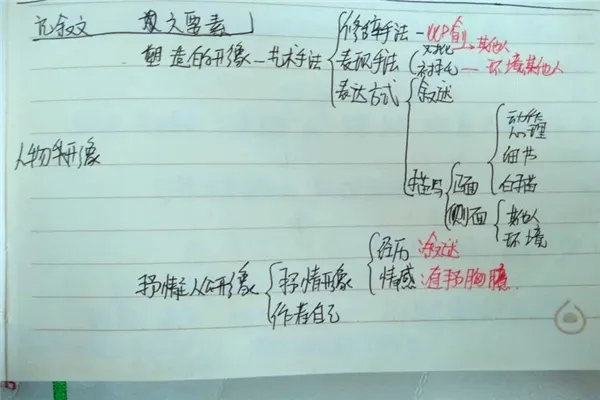 记叙文 散文要素
塑造的形像—艺术手法
修辞手法
表现手法
对比 其他人
衬托—环境、其他人
表达方式
叙述
描写
正面
动作
心理
细节
白描
侧面
其他人
环境
人物形像
抒情主人公形像
抒情形像
经历 叙述
情感 直抒胸臆
作者自己